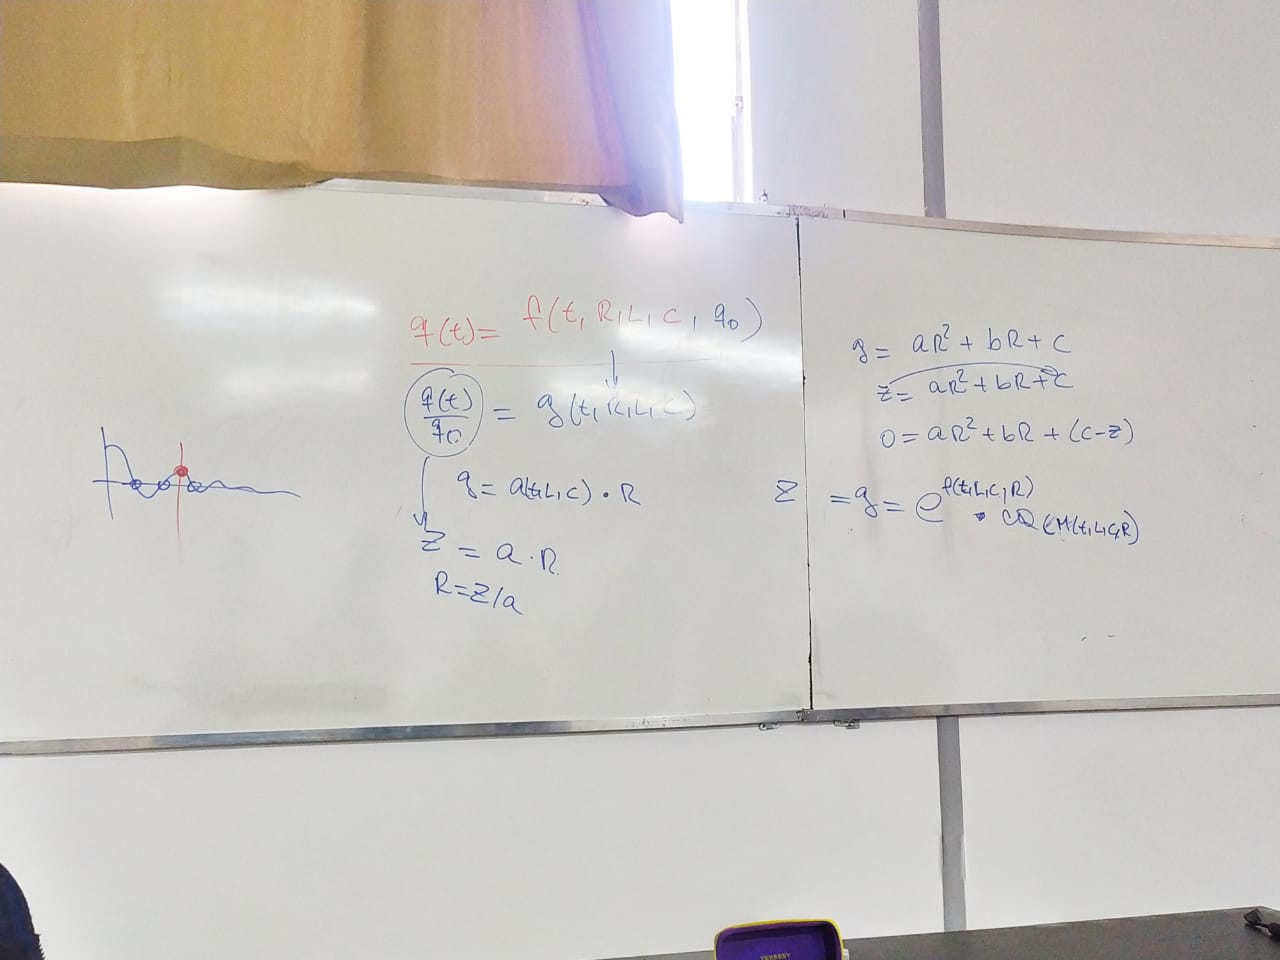 q(t) = f(t, R, L, C, q₀)
q(t)/q₀ = g(t, R, L, C)
g = a(t,L,C) • R
Z = a · R
R = Z/a
g = aR² + bR + C
Z = aR² + bR + C
0 = aR² + bR + (C-Z)
Z = g = e^f(t,L,C,R)